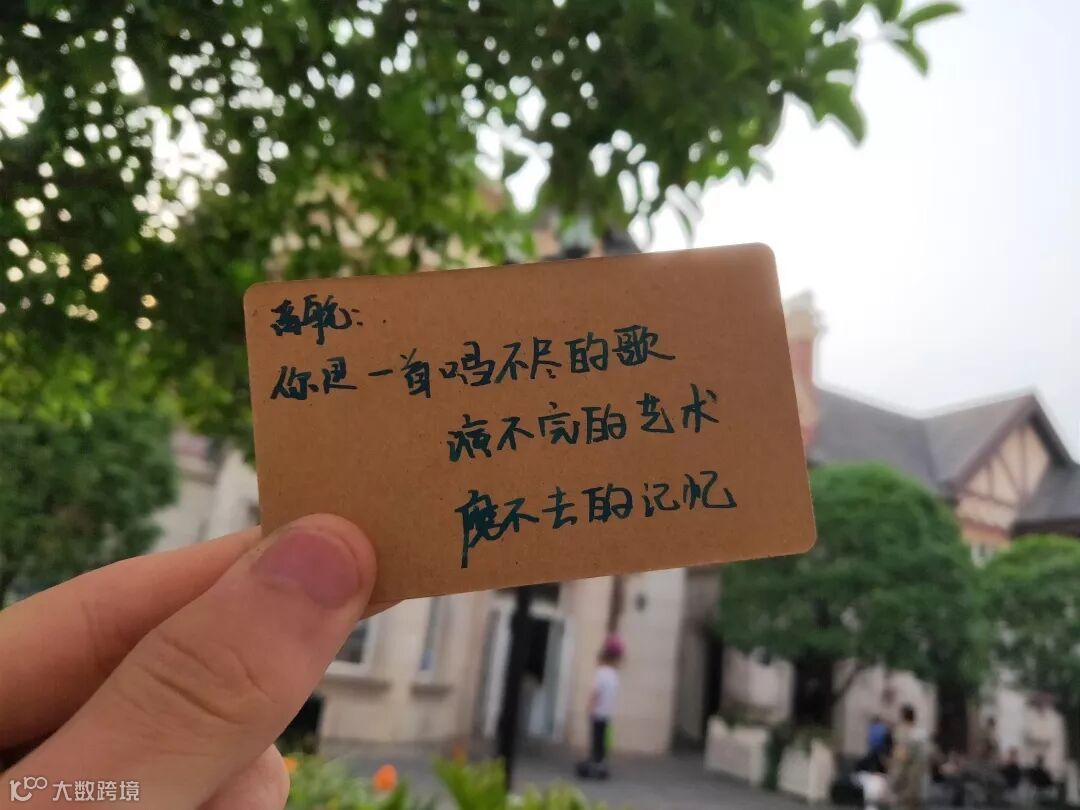 你是一首唱不尽的歌
演不完的艺术
磨不去的记忆
大数跨境